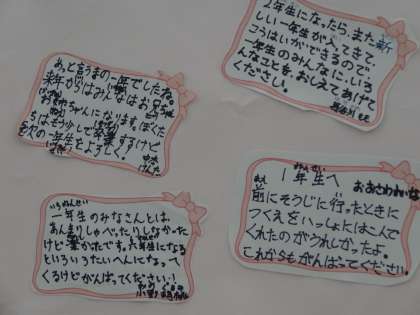 あっと言うまの一年でしたね。
来年からはみんなはお兄
ちゃんになります。ぼくた
ちはもう少しで卒業するけど
次の一年生をよろしく。
2年生になったら、また新
しい一年生が入ってきて、
こうはいができるので、
一年生のみんなに、いろ
んなことを、おしえてあげて
ください。
いちねんせい
一年生のみなさんとは、
あんまりしゃべったりしなかった
けど楽しかったです。六年生になる
といろいろたいへんになって
くるけどがんばってください!
1年生へ
ねんせい
前にそうじに行ったときに
まえ
つくえをいっしょにはこんで
くれたのがうれしかったよ。
これからもがんばってください。